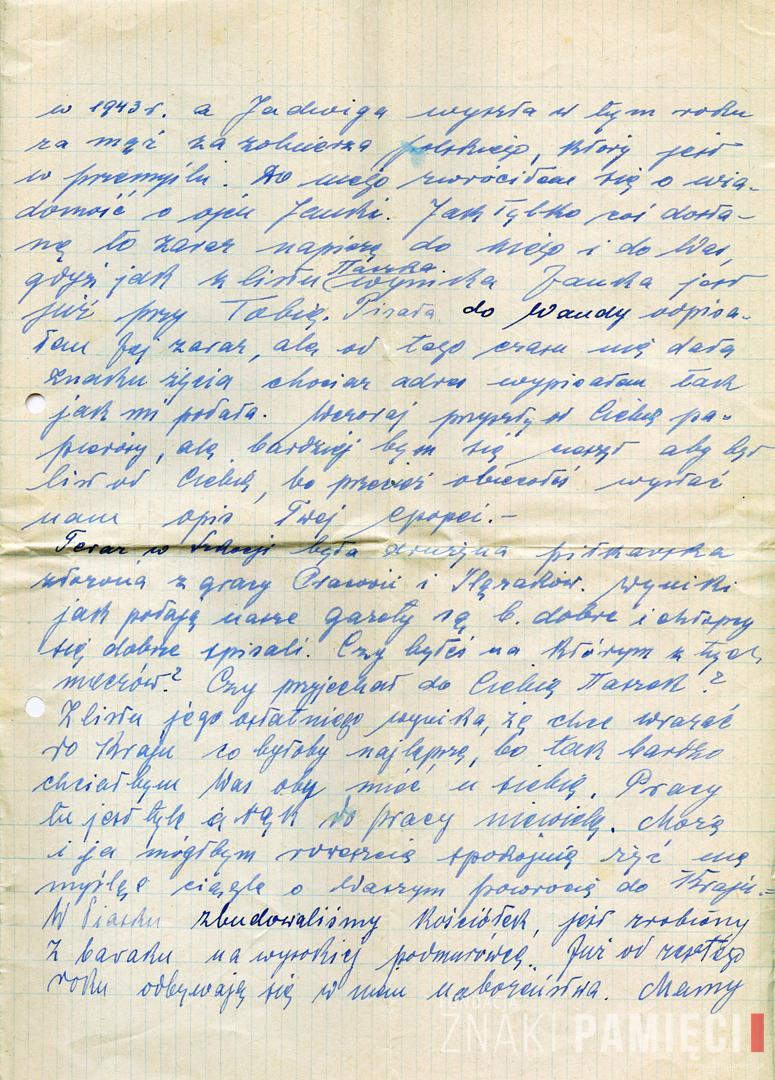 w 1943 r. a Jadwiga wyszła w tym roku
za mąż za żołnierza polskiego, który jest
w przemyślu. Do niego zwróciłem się o wia-
domość o ojcu Janki. Jak tylko coś dosta-
nę to zaraz napiszę do niego i do Was,
gdyż jak z listu Staszka wynika Janka jest
już przy Tobie. Pisała do Wandy odpisa-
łam Jej zaraz, ale od tego czasu nie dała
znaku życia chociaż adres wypisałam tak
jak mi podała. Wczoraj przyszły od Ciebie pa-
pierosy, ale bardziej bym się cieszył aby był
list od Ciebie, bo przecież obiecałeś wysłać
nam opis Twej epopei.-
Teraz w Szkocji była drużyna piłkarska
złożona z graczy Cracovii i Ślązaków. Wyniki
jak podają nasze gazety są b. dobre i chłopcy
się dobrze spisali. Czy byłeś na którym z tych
meczów? Czy przyjechał do Ciebie Staszek?
Z listu jego ostatniego wynika, że chce wracać
do Kraju co byłoby najlepsze, bo tak bardzo
chciałbym Was oby mieć u siebie. Pracy
tu jest tyle a rąk do pracy niewiele. Może
i ja mógłbym spokojnie żyć nie
myśląc ciągle o Waszym powrocie do Kraju.-
W Piasku zbudowaliśmy Kościółek, jest zrobiony
z baraku na wysokiej podmurówce. Już od zeszłego
roku odbywają się w nim nabożeństwa. Mamy
ZNAKI PAMIĘCI